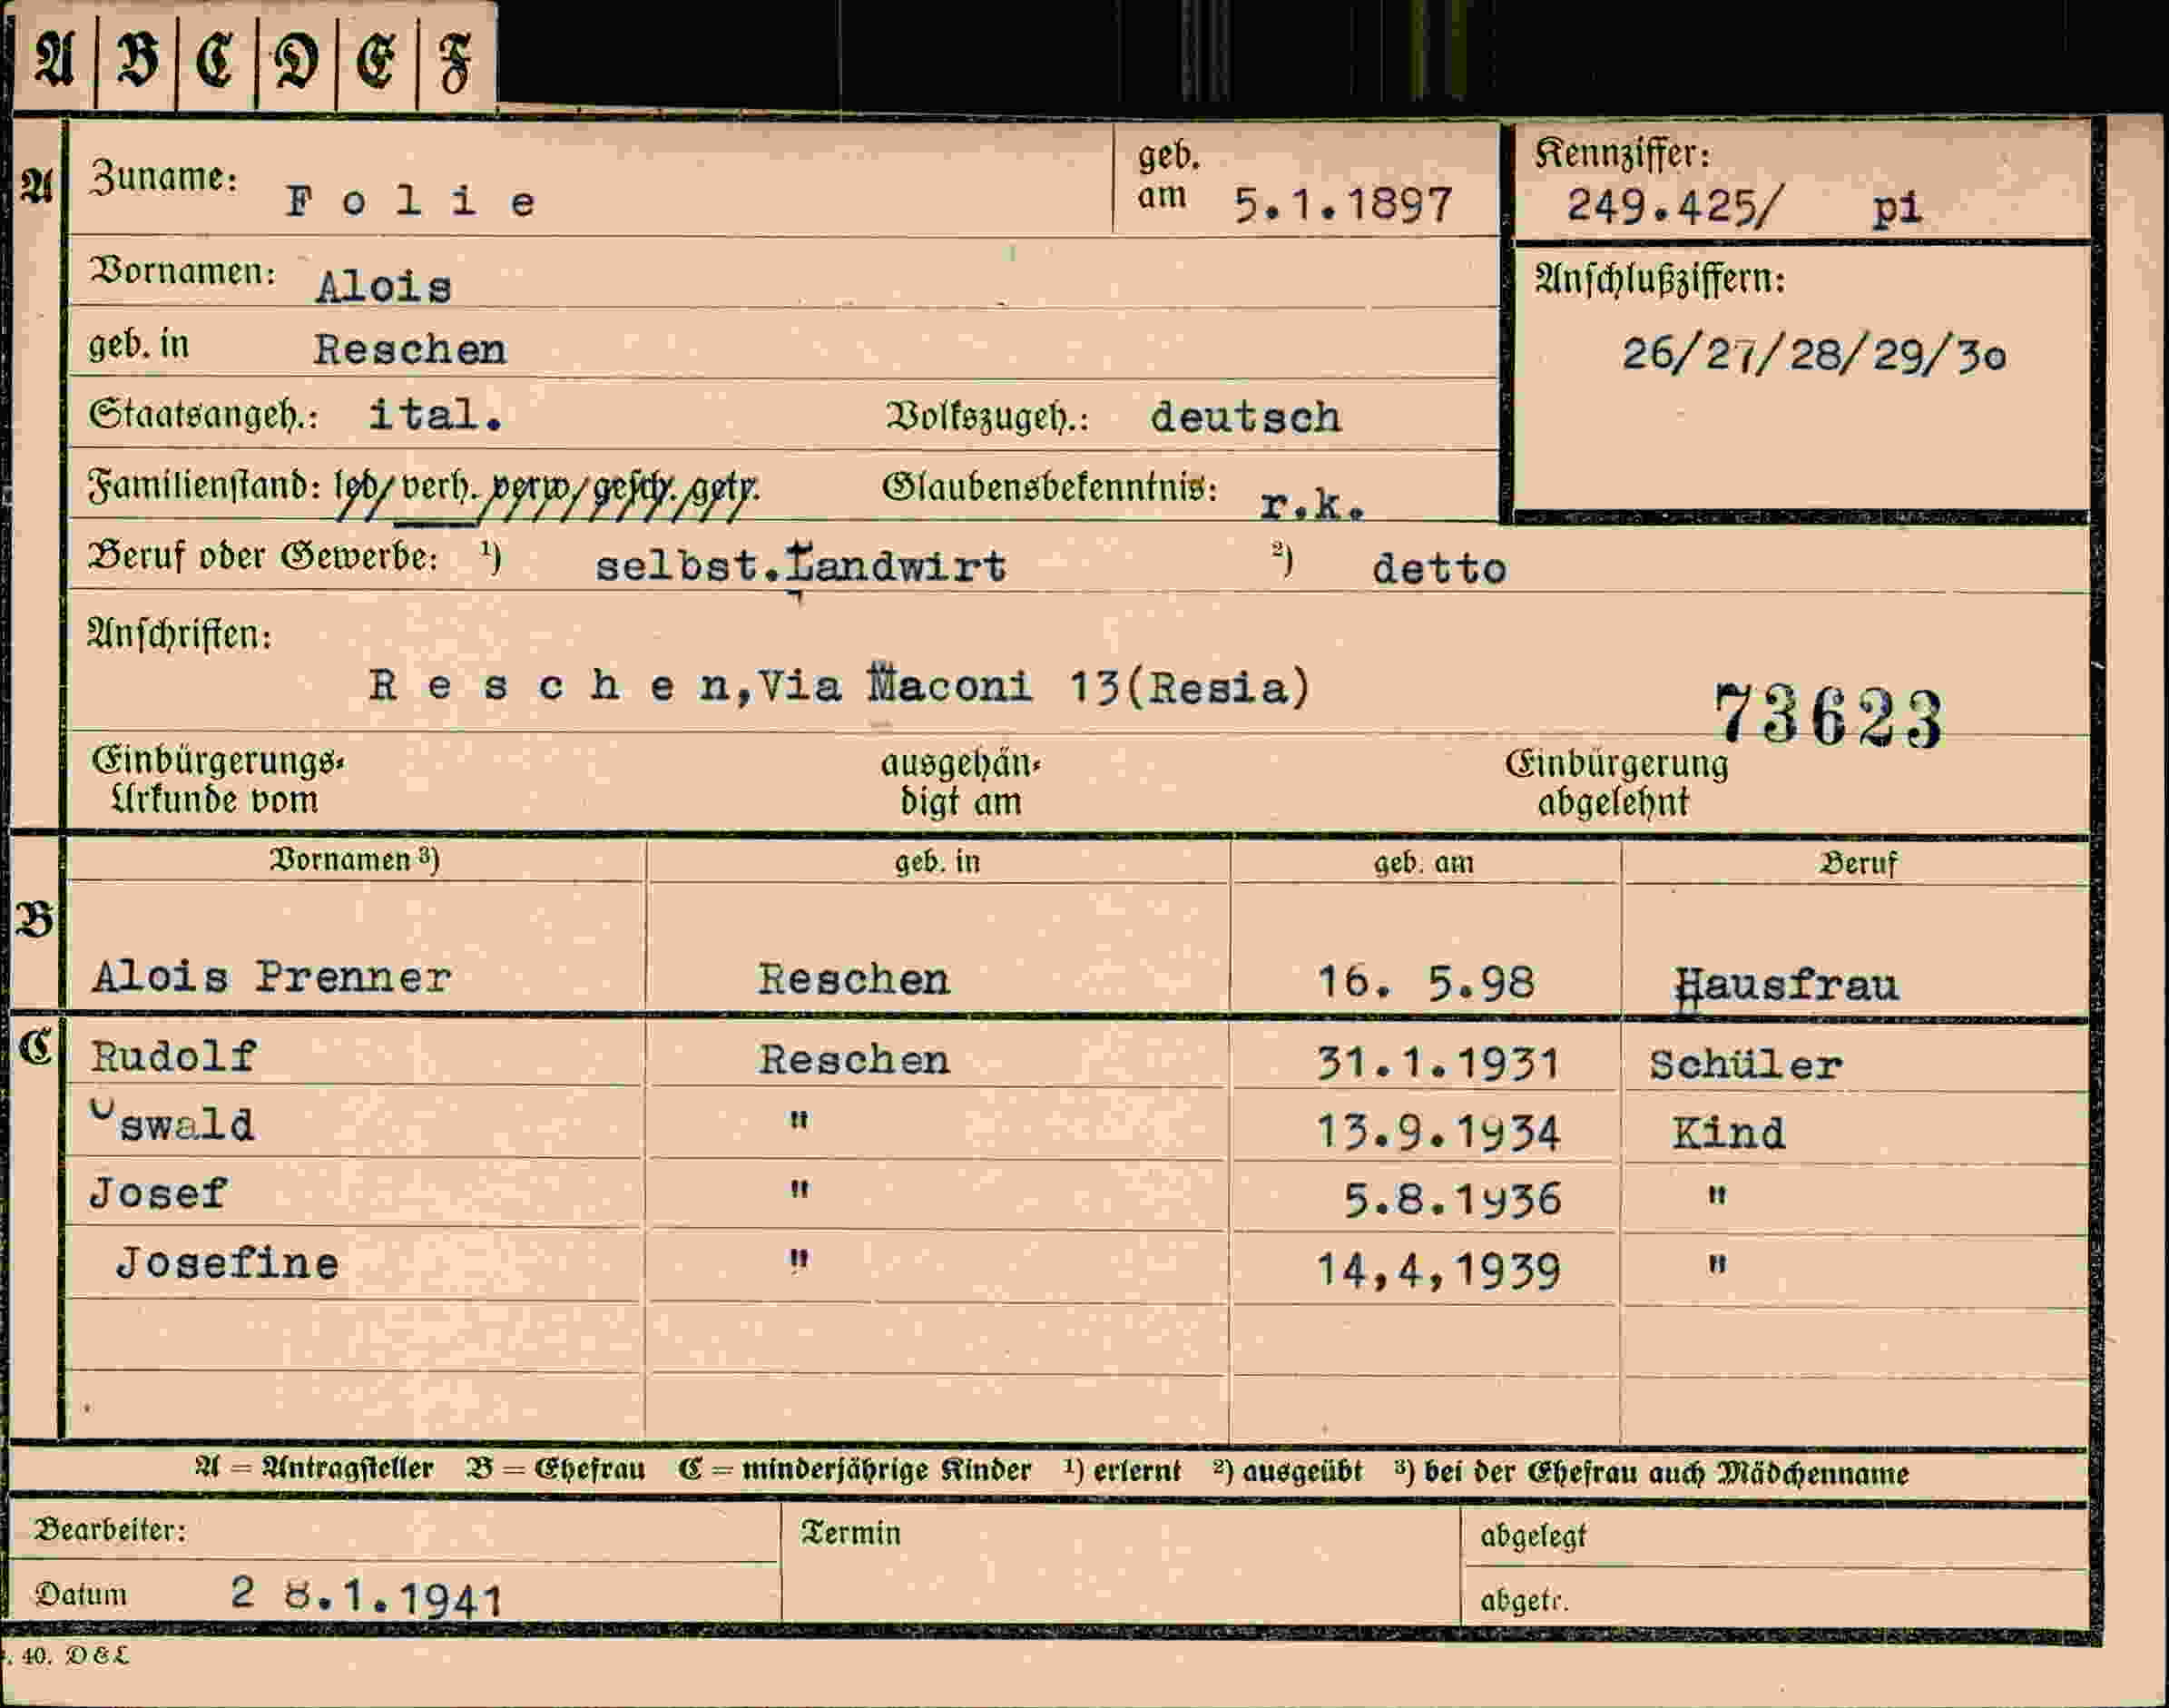 A B C D E F
A Zuname: F o l i e geb. am 5.1.1897 Kennziffer: 249.425/ pi
Vornamen: Alois Anschlußziffern:
geb. in Reschen 26/27/28/29/30
Staatsangeh.: ital. Volkszugeh.: deutsch
Familienstand: led/ verh. verw/ gesch. getr. Glaubensbekenntnis: r.k.
Beruf oder Gewerbe: ¹) selbst.Landwirt ²) detto
Anschriften:
R e s c h e n,Via Maconi 13(Resia) 73623
Einbürgerungs- ausgehän- Einbürgerung
Urkunde vom digt am abgelehnt
Vornamen ³) geb. in geb. am Beruf
B
Alois Prenner Reschen 16. 5.98 Hausfrau
C Rudolf Reschen 31.1.1931 Schüler
Oswald " 13.9.1934 Kind
Josef " 5.8.1936 "
Josefine " 14,4,1939 "
A = Antragsteller B = Ehefrau C = minderjährige Kinder ¹) erlernt ²) ausgeübt ³) bei der Ehefrau auch Mädchenname
Bearbeiter: Termin abgelegt
Datum 2 8.1.1941 abgetr.
. 40. D & L